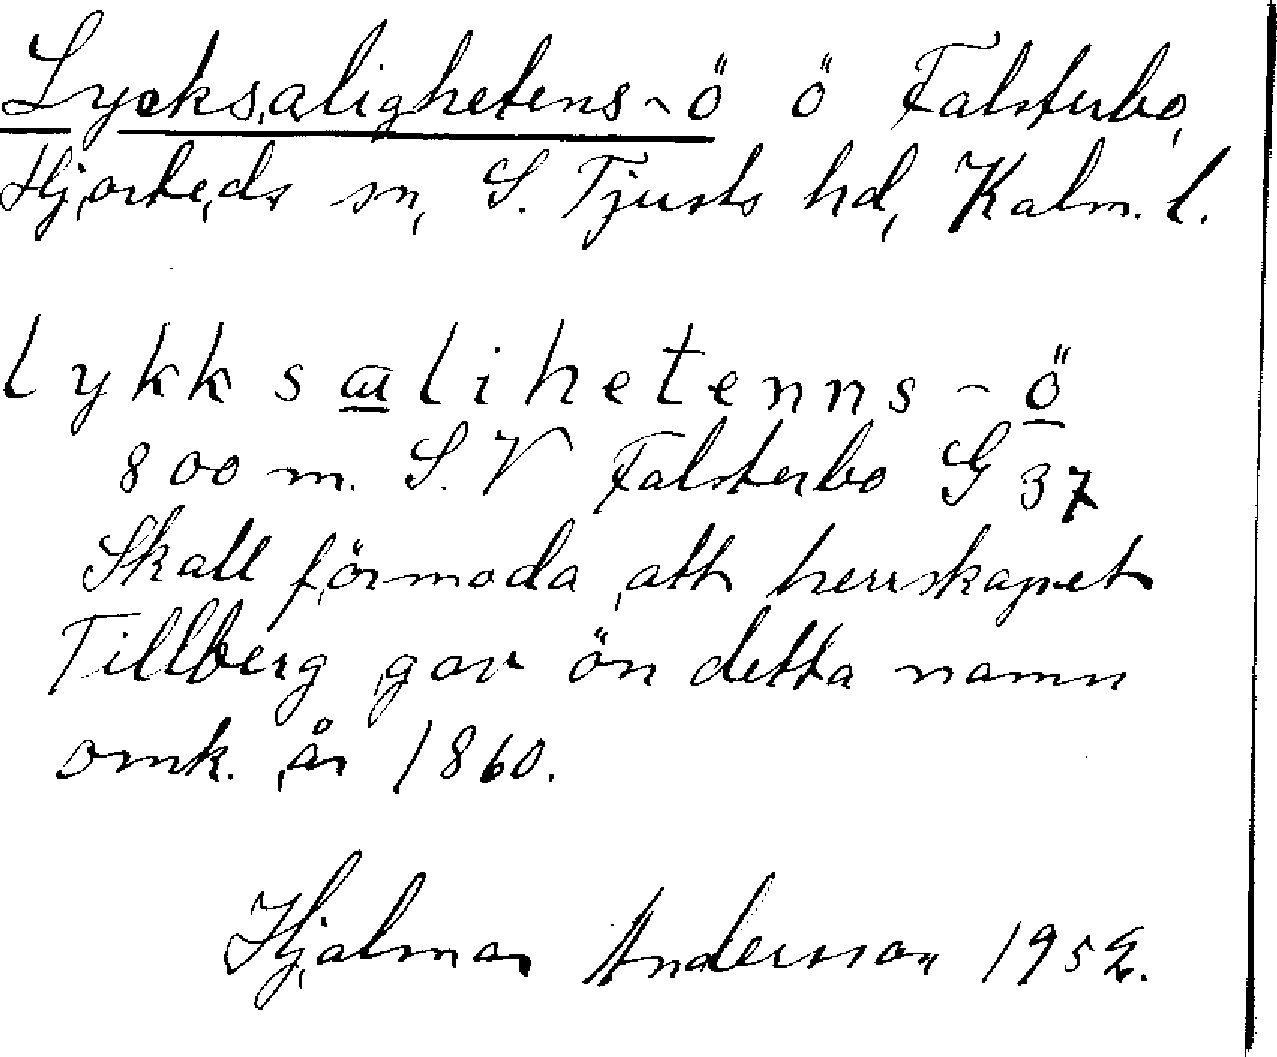 Lycksalighetens-ö ö Falsterbo,
Hjorteds sn, S. Tjusts hd, Kalm. l.
lykksalihetenns-ö
800 m. S.V Falsterbo G 37
Skall förmoda att herrskapet
Tillberg gav ön detta namn
omk. år 1860.
Hjalmar Andersson 1952.